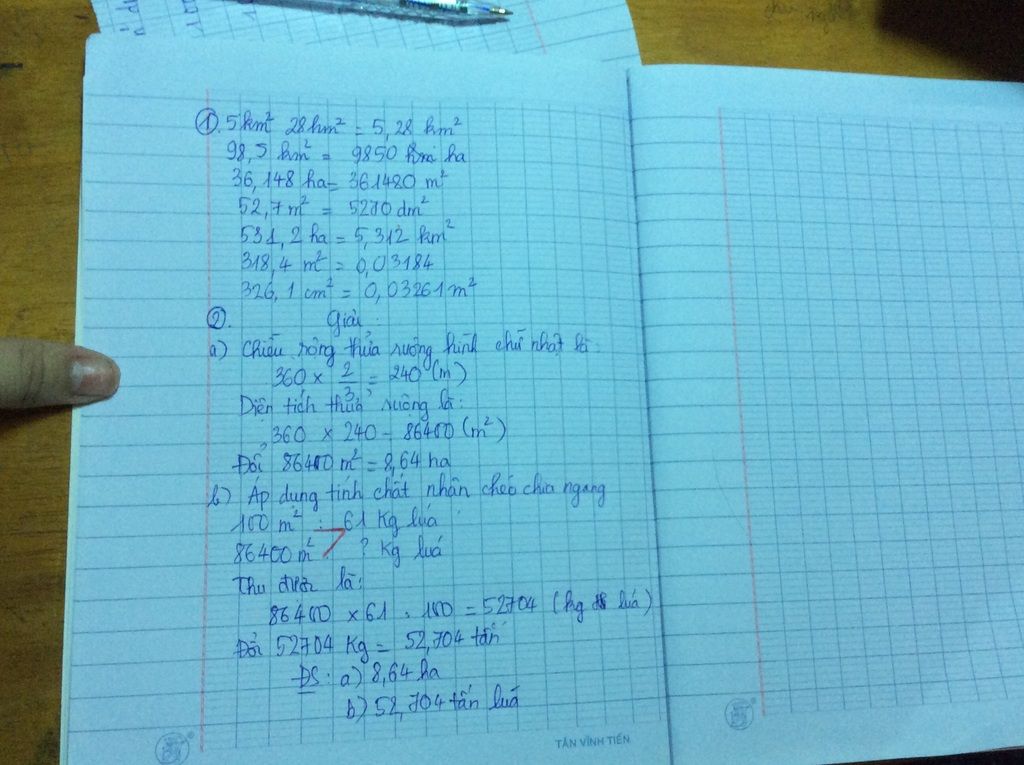 ① 5km² 28hm² = 5,28 km²
98,5 km² = 9850 ha
36,148 ha = 361480 m²
52,7 m² = 5270 dm²
531,2 ha = 5,312 km²
318,4 m² = 0,03184
326,1 cm² = 0,03261 m²
②. Giải :
a) Chiều rộng thửa ruộng hình chữ nhật là :
360 × 2/3 = 240 (m)
Diện tích thửa ruộng là :
360 × 240 = 86400 (m²)
Đổi 86400 m² = 8,64 ha
b) Áp dụng tính chất nhân chéo chia ngang
100 m² : 61 Kg lúa
86400 m² ? Kg lúa
Thu được là :
86400 × 61 : 100 = 52704 (kg lúa)
Đổi 52704 Kg = 52,704 tấn
ĐS : a) 8,64 ha
b) 52,704 tấn lúa
TÂN VĨNH TIẾN